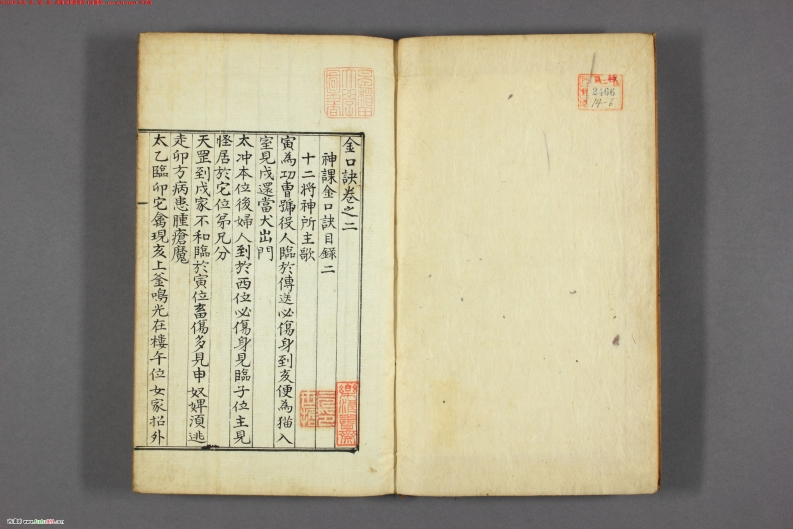 金口訣卷之二
神課金口訣目録二
十二將神所主歌
寅為功曹號役人臨於傳送必傷身到亥便為猫入
室見戌還當犬出門
太冲本位後婦人到於西位必傷身見臨子位主見
怪居於宅位弟兄分
天罡到戌家不和臨於寅位畜傷多見申奴婢須逃
走卯方病患腫瘡魔
太乙臨卯宅禽現亥上釜鳴光在樓午位女家招外
2466
14-6